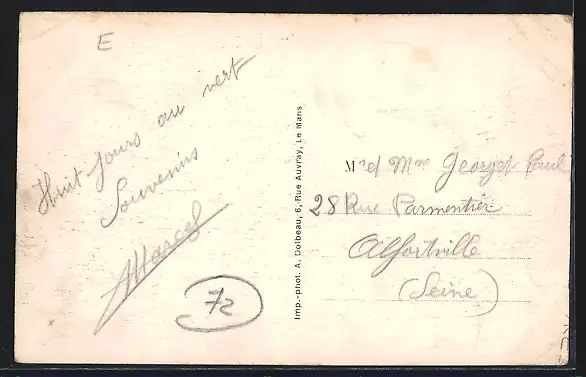 E
Huit jours au vert
Souvenirs
Marcel
72
Imp.-phot. A. Dolbeau, 6, Rue Auvray, Le Mans
Mr et Mme Georget Paul
28 Rue Parmentier
Alfortville
(Seine)